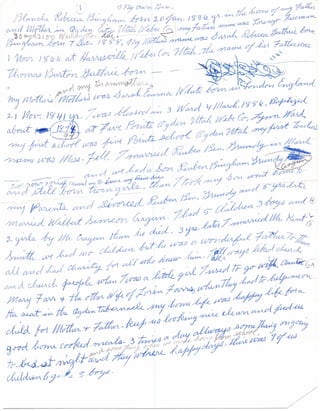 1
My own Gen.
Blanche Rebecca Bingham born 20 Jan. 1886 yr. in the home of my Father
and Mother in Ogden City Utah Weber Co. my Fathers name was
Bingham born 7 Dec. 1858. My Mothers name was Sarah Rebecca Guthrie born
1 Nov. 1866 at Harrisville Weber Co. Utah. The name of her Father was
Thomas Burton Guthrie born —
and my Grammother
My Mothers Mother was Sarah Emma White born in London England
21 Nov. 1841 yr. I was blessed in 3 Ward 4 March 1886. Baptized
about 1894 at Five Points Ogden Utah Web Co, Lynn Ward
my first school was five Points School Ogden Utah my first Teachers
name was Miss Fell. I married Reuben Ben Grundy in March
and we had a Son Reuben Bingham Grundy
and still born twin girls. than I took my Son went home to
my Parents and Divorced Reuben Ben Grundy and 5 yrs later
married Wilbert Simeon Cragun. I had 5 Children 3 boys and
2 girls by Mr. Cragun than he died. 3 yrs. later I married Mr. Kent
Smith. we had no children but he was a wonderful Father to
all and had charity for all who knew him. I always liked church
and church people when I was a little girl I used to go with
Mary Farr & the other Wife of Lorin Farrs, when they had to help me on
the seat in the Ogden tabernacle my home life was happy life for a
child for Mother & Father keep us looking nice clean and feed us
good home cooked meals 3 times a day allways something ongoing
to be sit night and they where happy days. there was 9 of us
children 6 girls 3 boys.